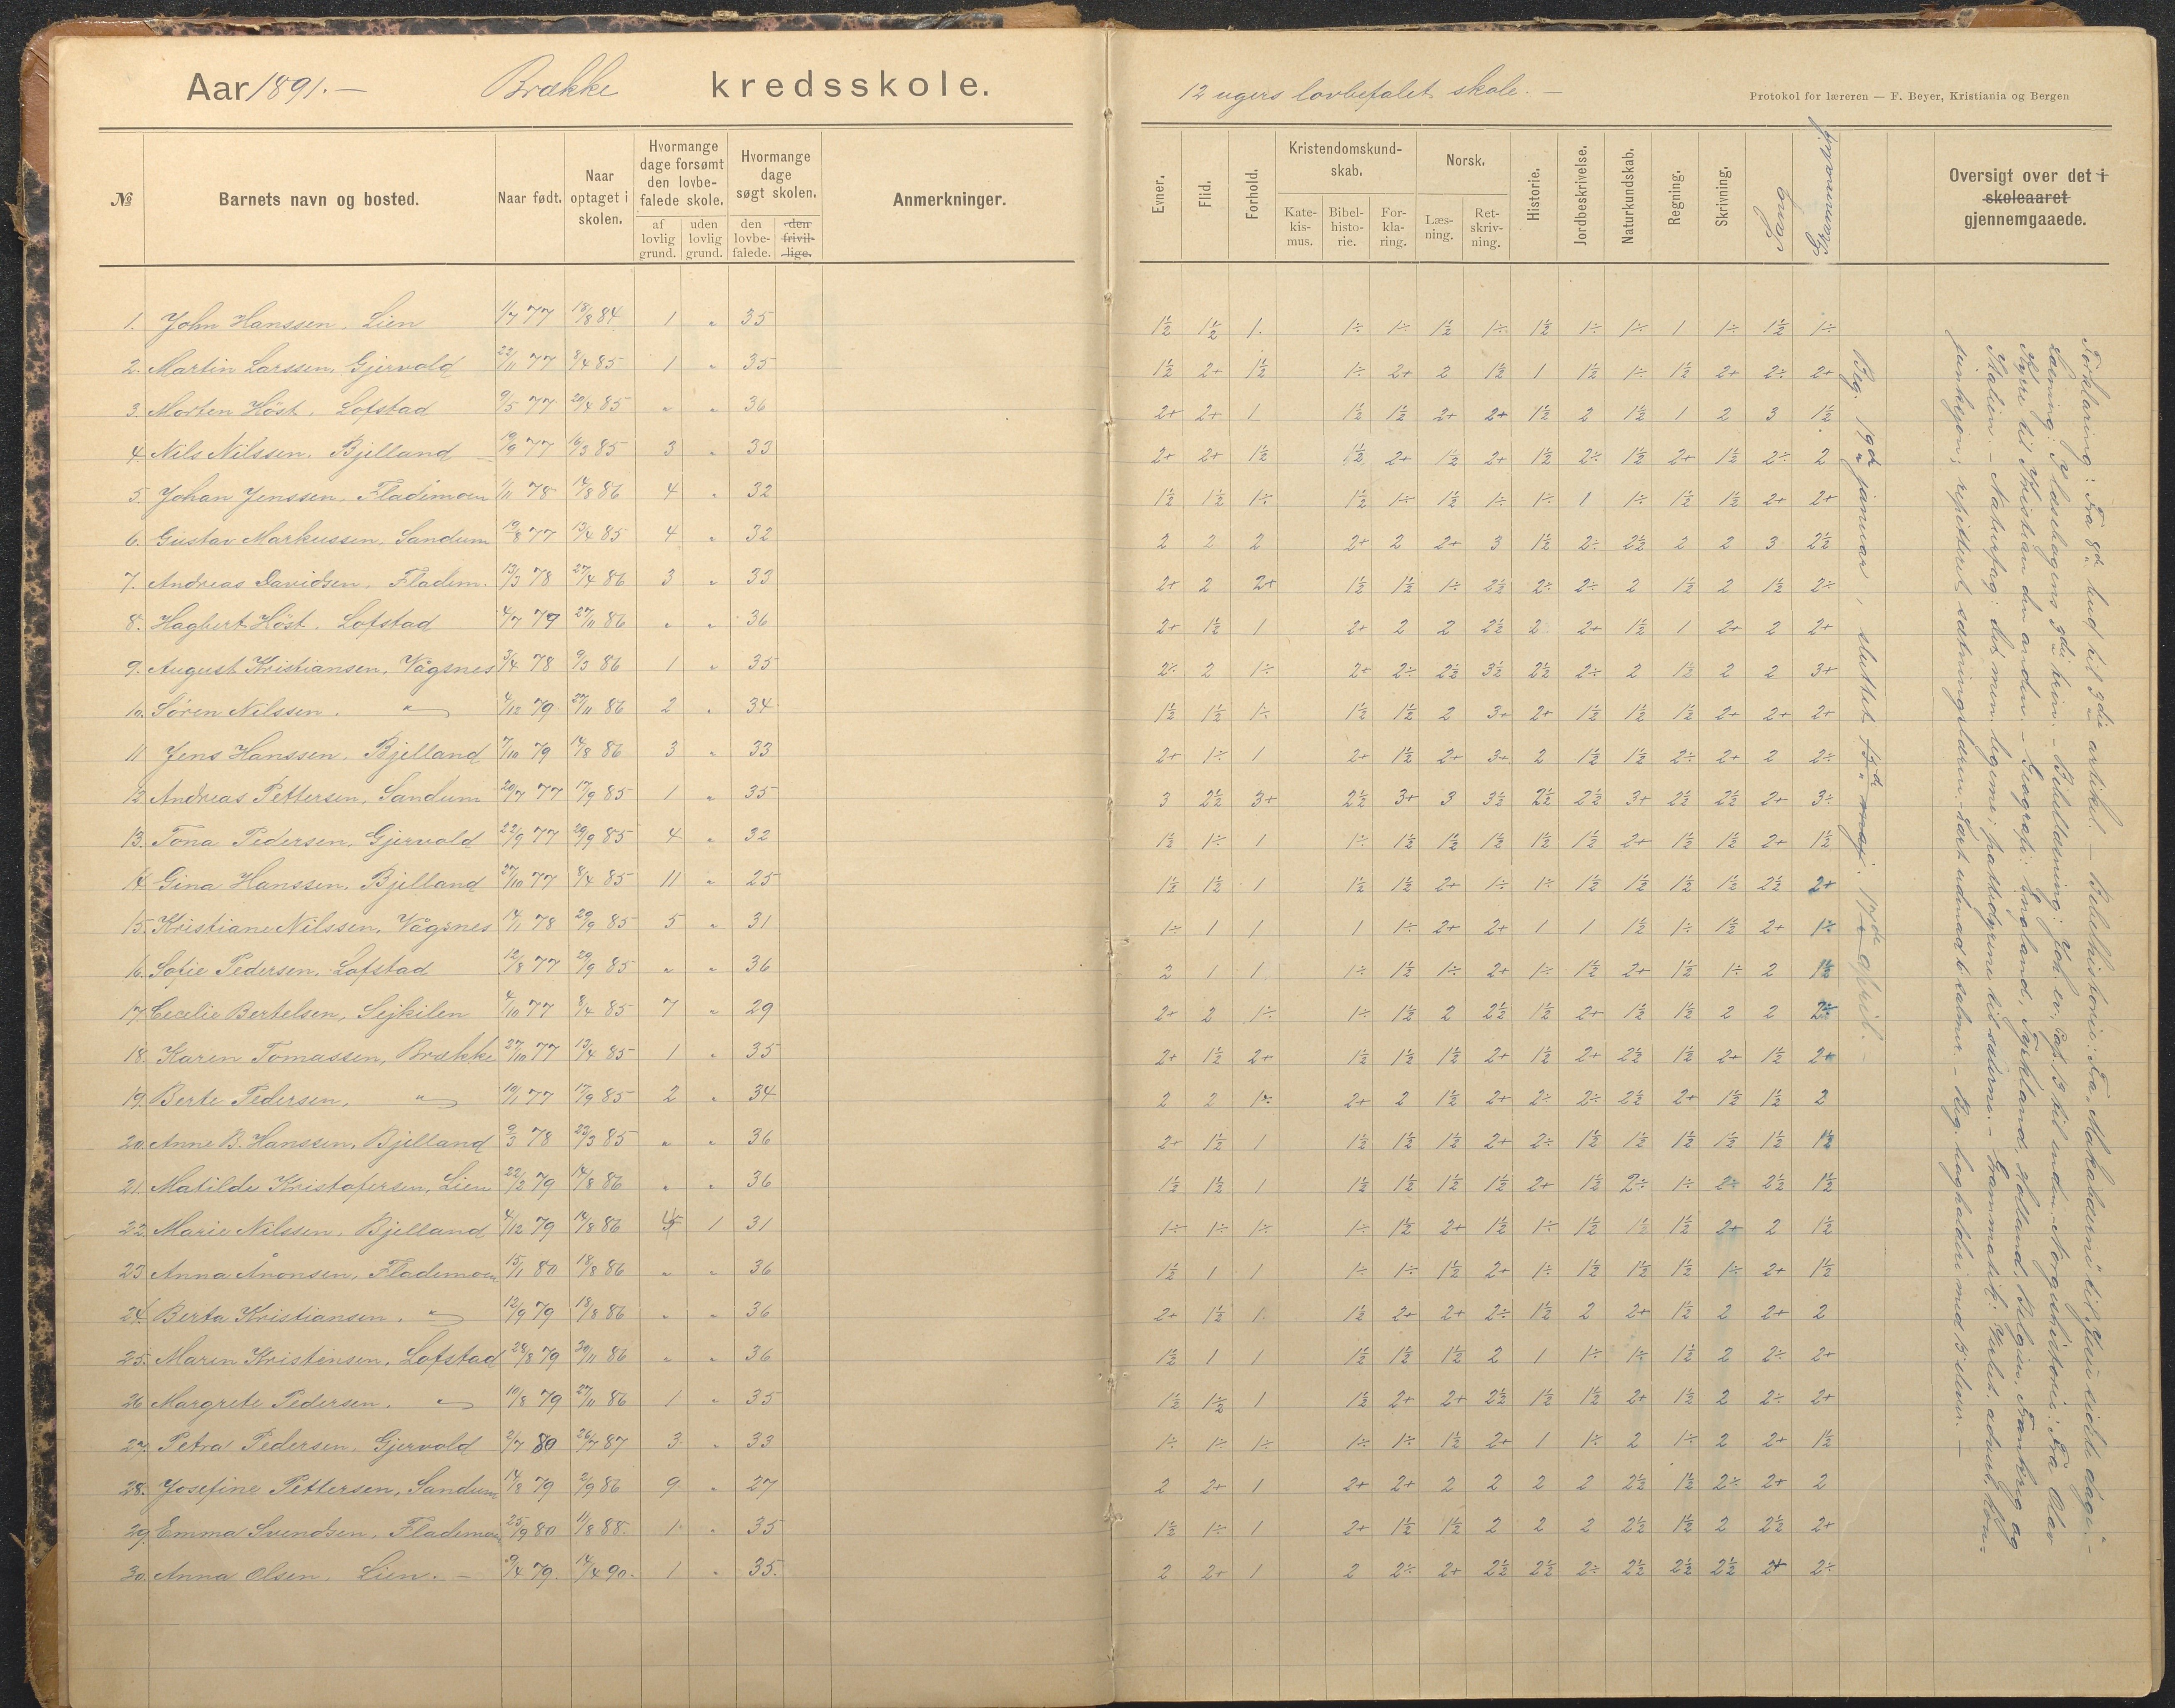 Aar 1891. — Brække kredsskole.
12 ugers lovbefalet skole. —
Protokol for læreren — F. Beyer, Kristiania og Bergen
№ | Barnets navn og bosted. | Naar født. | Naar optaget i skolen. | Hvormange dage forsømt den lovbefalede skole. af lovlig grund. | uden lovlig grund. | Hvormange dage søgt skolen. den lovbefalede. | den frivillige. | Anmerkninger.
Evner. | Flid. | Forhold. | Kristendomskundskab. Katekismus. | Bibelhistorie. | Forklaring. | Norsk. Læsning. | Retskrivning. | Historie. | Jordbeskrivelse. | Naturkundskab. | Regning. | Skrivning. | Sang | Grammatik | Oversigt over det i skoleaaret gjennemgaaede.
1. John Hanssen, Lien 1/7 77 18/8 84 1 " 35
2. Martin Larssen, Gjervold 22/11 77 8/4 85 1 " 35
3. Morten Höst, Lofstad 9/5 77 20/4 85 " " 36
4. Nils Nilssen, Bjelland 19/9 77 16/3 85 3 " 33
5. Johan Jenssen, Flademoen 1/11 78 14/8 86 4 " 32
6. Gustav Markussen, Sandum 19/8 77 13/4 85 4 " 32
7. Andreas Davidsen, Fladem. 13/3 78 27/4 86 3 " 33
8. Hagbert Höst, Lofstad 4/7 79 27/11 86 " " 36
9. August Kristiansen, Vågsnes 3/4 78 9/3 86 1 " 35
10. Sören Nilssen, " 4/12 79 27/11 86 2 " 34
11. Jens Hanssen, Bjelland 7/10 79 14/8 86 3 " 33
12. Andreas Pettersen, Sandum 20/7 77 17/9 85 1 " 35
13. Tona Pedersen, Gjervold 22/9 77 29/9 85 4 " 32
14. Gina Hanssen, Bjelland 27/10 77 8/4 85 11 " 25
15. Kristiane Nilssen, Vågsnes 14/1 78 29/9 85 5 " 31
16. Sofie Pedersen, Lofstad 12/8 77 29/9 85 " " 36
17. Cecelie Bertelsen, Sejkilen 4/10 77 8/4 85 7 " 29
18. Karen Tomassen, Brække 27/10 77 13/4 85 1 " 35
19. Berte Pedersen, " 10/1 77 17/9 85 2 " 34
20. Anne B. Hanssen, Bjelland 9/3 78 23/3 85 " " 36
21. Matilde Kristofersen, Lien 22/2 79 14/8 86 " " 36
22. Marie Nilssen, Bjelland 4/12 79 14/8 86 1 31
23. Anna Ånonsen, Flademoen 15/1 80 18/8 86 " " 36
24. Berta Kristiansen, " 12/9 79 18/8 86 " " 36
25. Maren Kristensen, Lofstad 28/8 79 30/11 86 " " 36
26. Margrete Pedersen, " 10/8 79 27/11 86 1 " 35
27. Petra Pedersen, Gjervold 2/7 80 26/7 87 3 " 33
28. Josefine Pettersen, Sandum 14/8 79 2/9 86 9 " 27
29. Emma Svendsen, Flademoen 25/9 80 11/8 88. 1 " 35
30. Anna Olsen, Lien. — 9/4 79. 14/4 90. 1 " 35.
1½ 1½ 1. 1÷ 1÷ 1½ 1÷ 1½ 1÷ 1÷ 1 1÷ 1½ 1÷
1½ 2+ 1½ 1÷ 2+ 2 1½ 1 1½ 1÷ 1½ 2+ 2÷ 2+
2+ 2+ 1 1½ 1½ 2+ 2+ 1½ 2 1½ 1 2 3 1½
2+ 2+ 1½ 1½ 2+ 1½ 2+ 1½ 2÷ 1½ 2+ 1½ 2÷ 2
1½ 1½ 1÷ 1½ 1÷ 1½ 1÷ 1÷ 1 1÷ 1½ 1½ 2+ 2+
2 2 2 2+ 2 2+ 3 1½ 2÷ 2½ 2 2 3 2½
2+ 2 2+ 1½ 1½ 1÷ 2½ 2÷ 2÷ 2 1½ 2 1½ 2÷
2+ 1½ 1 2+ 2 2 2½ 2 2+ 1½ 1 2+ 2 2+
2÷ 2 1÷ 2+ 2÷ 2½ 3½ 2½ 2÷ 2 1½ 2 2 3+
1½ 1½ 1÷ 1½ 1½ 2 3+ 2+ 1½ 1½ 1½ 2+ 2+ 2+
2+ 1÷ 1 2+ 1½ 2+ 3+ 2 1½ 1½ 2÷ 2+ 2 2÷
3 2½ 3+ 2½ 3+ 3 3½ 2½ 2½ 3+ 2½ 2½ 2+ 3÷
1½ 1÷ 1 1÷ 1½ 1½ 1½ 1½ 1½ 2+ 1½ 1½ 2+ 1½
1½ 1½ 1 1½ 1½ 2+ 1÷ 1÷ 1½ 1½ 1½ 1½ 2½ 2+
1÷ 1 1 1 1÷ 2+ 2+ 1 1 1½ 1÷ 1½ 2+ 1÷
2 1 1 1÷ 1½ 1÷ 2+ 1÷ 1½ 2+ 1½ 1÷ 2 1½
2+ 2 1÷ 1÷ 1½ 2 2½ 1½ 2+ 1½ 1½ 2 2 2÷
2+ 1½ 2+ 1½ 1½ 1½ 2+ 1½ 2+ 2½ 1½ 2+ 1½ 2+
2 2 1÷ 2+ 2 1½ 2+ 2÷ 2÷ 2½ 2+ 1½ 1½ 2
2+ 1½ 1 1½ 1½ 1½ 2+ 2÷ 1½ 1½ 1½ 1½ 1½ 1½
1½ 1½ 1 1½ 1½ 1½ 1½ 2+ 1½ 2÷ 1÷ 2÷ 2½ 1½
1÷ 1÷ 1÷ 1÷ 1½ 2+ 1½ 1÷ 1½ 1½ 1½ 2+ 2 1½
1½ 1 1 1÷ 1÷ 1½ 2+ 1÷ 1½ 1½ 1½ 1÷ 2+ 1½
2+ 1½ 1 1½ 2+ 2+ 2÷ 1½ 2 2+ 1½ 2 2+ 2
1½ 1 1 1½ 1½ 1½ 2 1 1÷ 1÷ 1½ 2 2÷ 2+
1½ 1½ 1 1½ 2+ 2+ 2½ 1½ 1½ 2+ 1½ 2 2÷ 2+
1÷ 1÷ 1÷ 1÷ 1÷ 1½ 2+ 1 1÷ 2 1÷ 2 2+ 1½
2 2+ 1 2+ 2+ 2 2 2 2 2½ 1½ 2÷ 2+ 2
1½ 1÷ 1 2+ 1½ 1½ 2 2 2 2½ 1½ 2 2½ 2+
2 2+ 1 2 2÷ 2+ 2½ 2½ 2÷ 2½ 2½ 2½ 2+ 2÷
Forklaring: Fra 8de bud til 3die artikel. — Bibelhistorie: Fra "Makabæerne" til "Jesu sidste dage". —
Læsning: P. Lassehagens 3die trin. — Bibellæsning: Joh. ev. Kap. 13 til enden. — Norgeshistorie: Fra Olav
Kyrre til Kristian den anden. — Geografi: England, Tyskland, Holland, Belgien, Frankrig og
Italien. — Naturfag: Det men. legeme; pattedyrene til sælerne. — Grammatik: Verbet, adverb, kon=
junksjon; repetitert sætningslæren. — Lært udenad 6 salmer. — Reg. hoghelder med Bidenr. —
Beg. 19de januar, sluttet 13de maj. 17de april. —